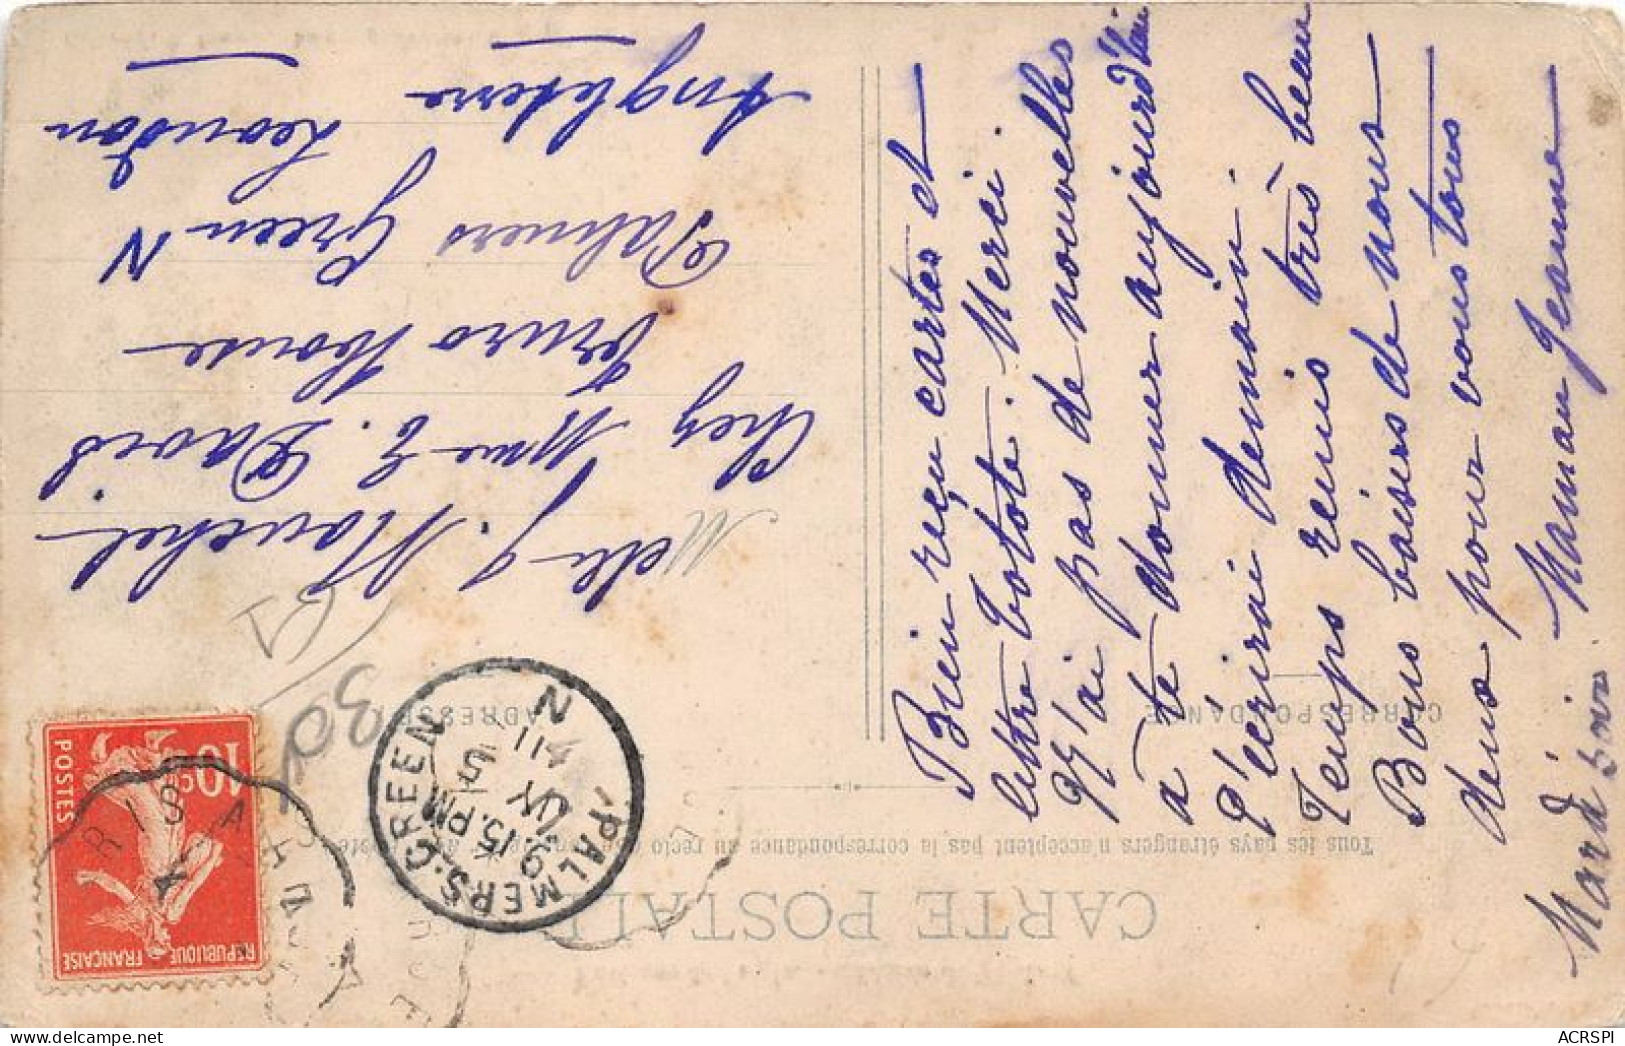 CARTE POSTALE
Tous les pays étrangers n'acceptent pas la correspondance au recto
CORRESPONDANCE
ADRESSE
Bien reçu cartes et
lettre Totote. Merci.
N'ai pas de nouvelles
à te donner aujourd'hui
T'écrirai demain.
Temps remis très beau
Bons baisers de nous
deux pour vous tous
Maman Jeanne
Mardi soir
Melle J. Mouchel
Chez Mme E. David
Truro House
Palmers Green N
Leondon
Angleterre
REPUBLIQUE FRANÇAISE
POSTES
10c
PALMERS.GREEN
N
9.15.PM
JY
11
ACRSPI